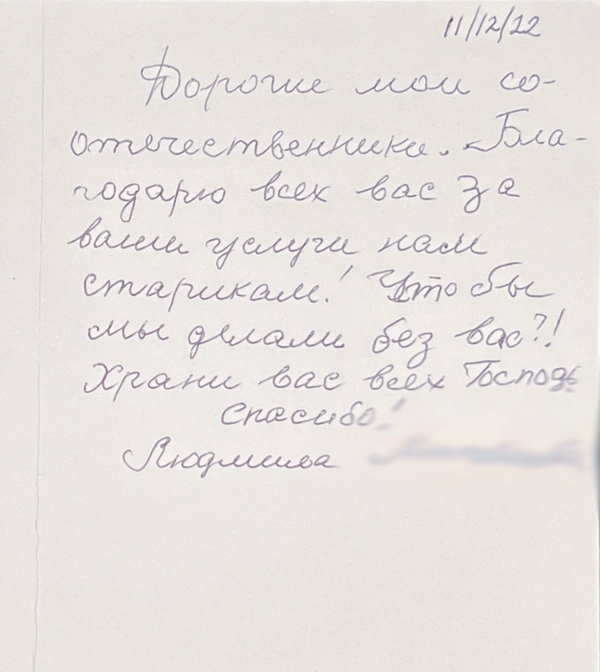 11/12/22
Дорогие мои со-
отечественники. Бла-
годарю всех вас за
ваши услуги нам
старикам! Что бы
мы делали без вас?!
Храни вас всех Господь
Спасибо!
Людмила